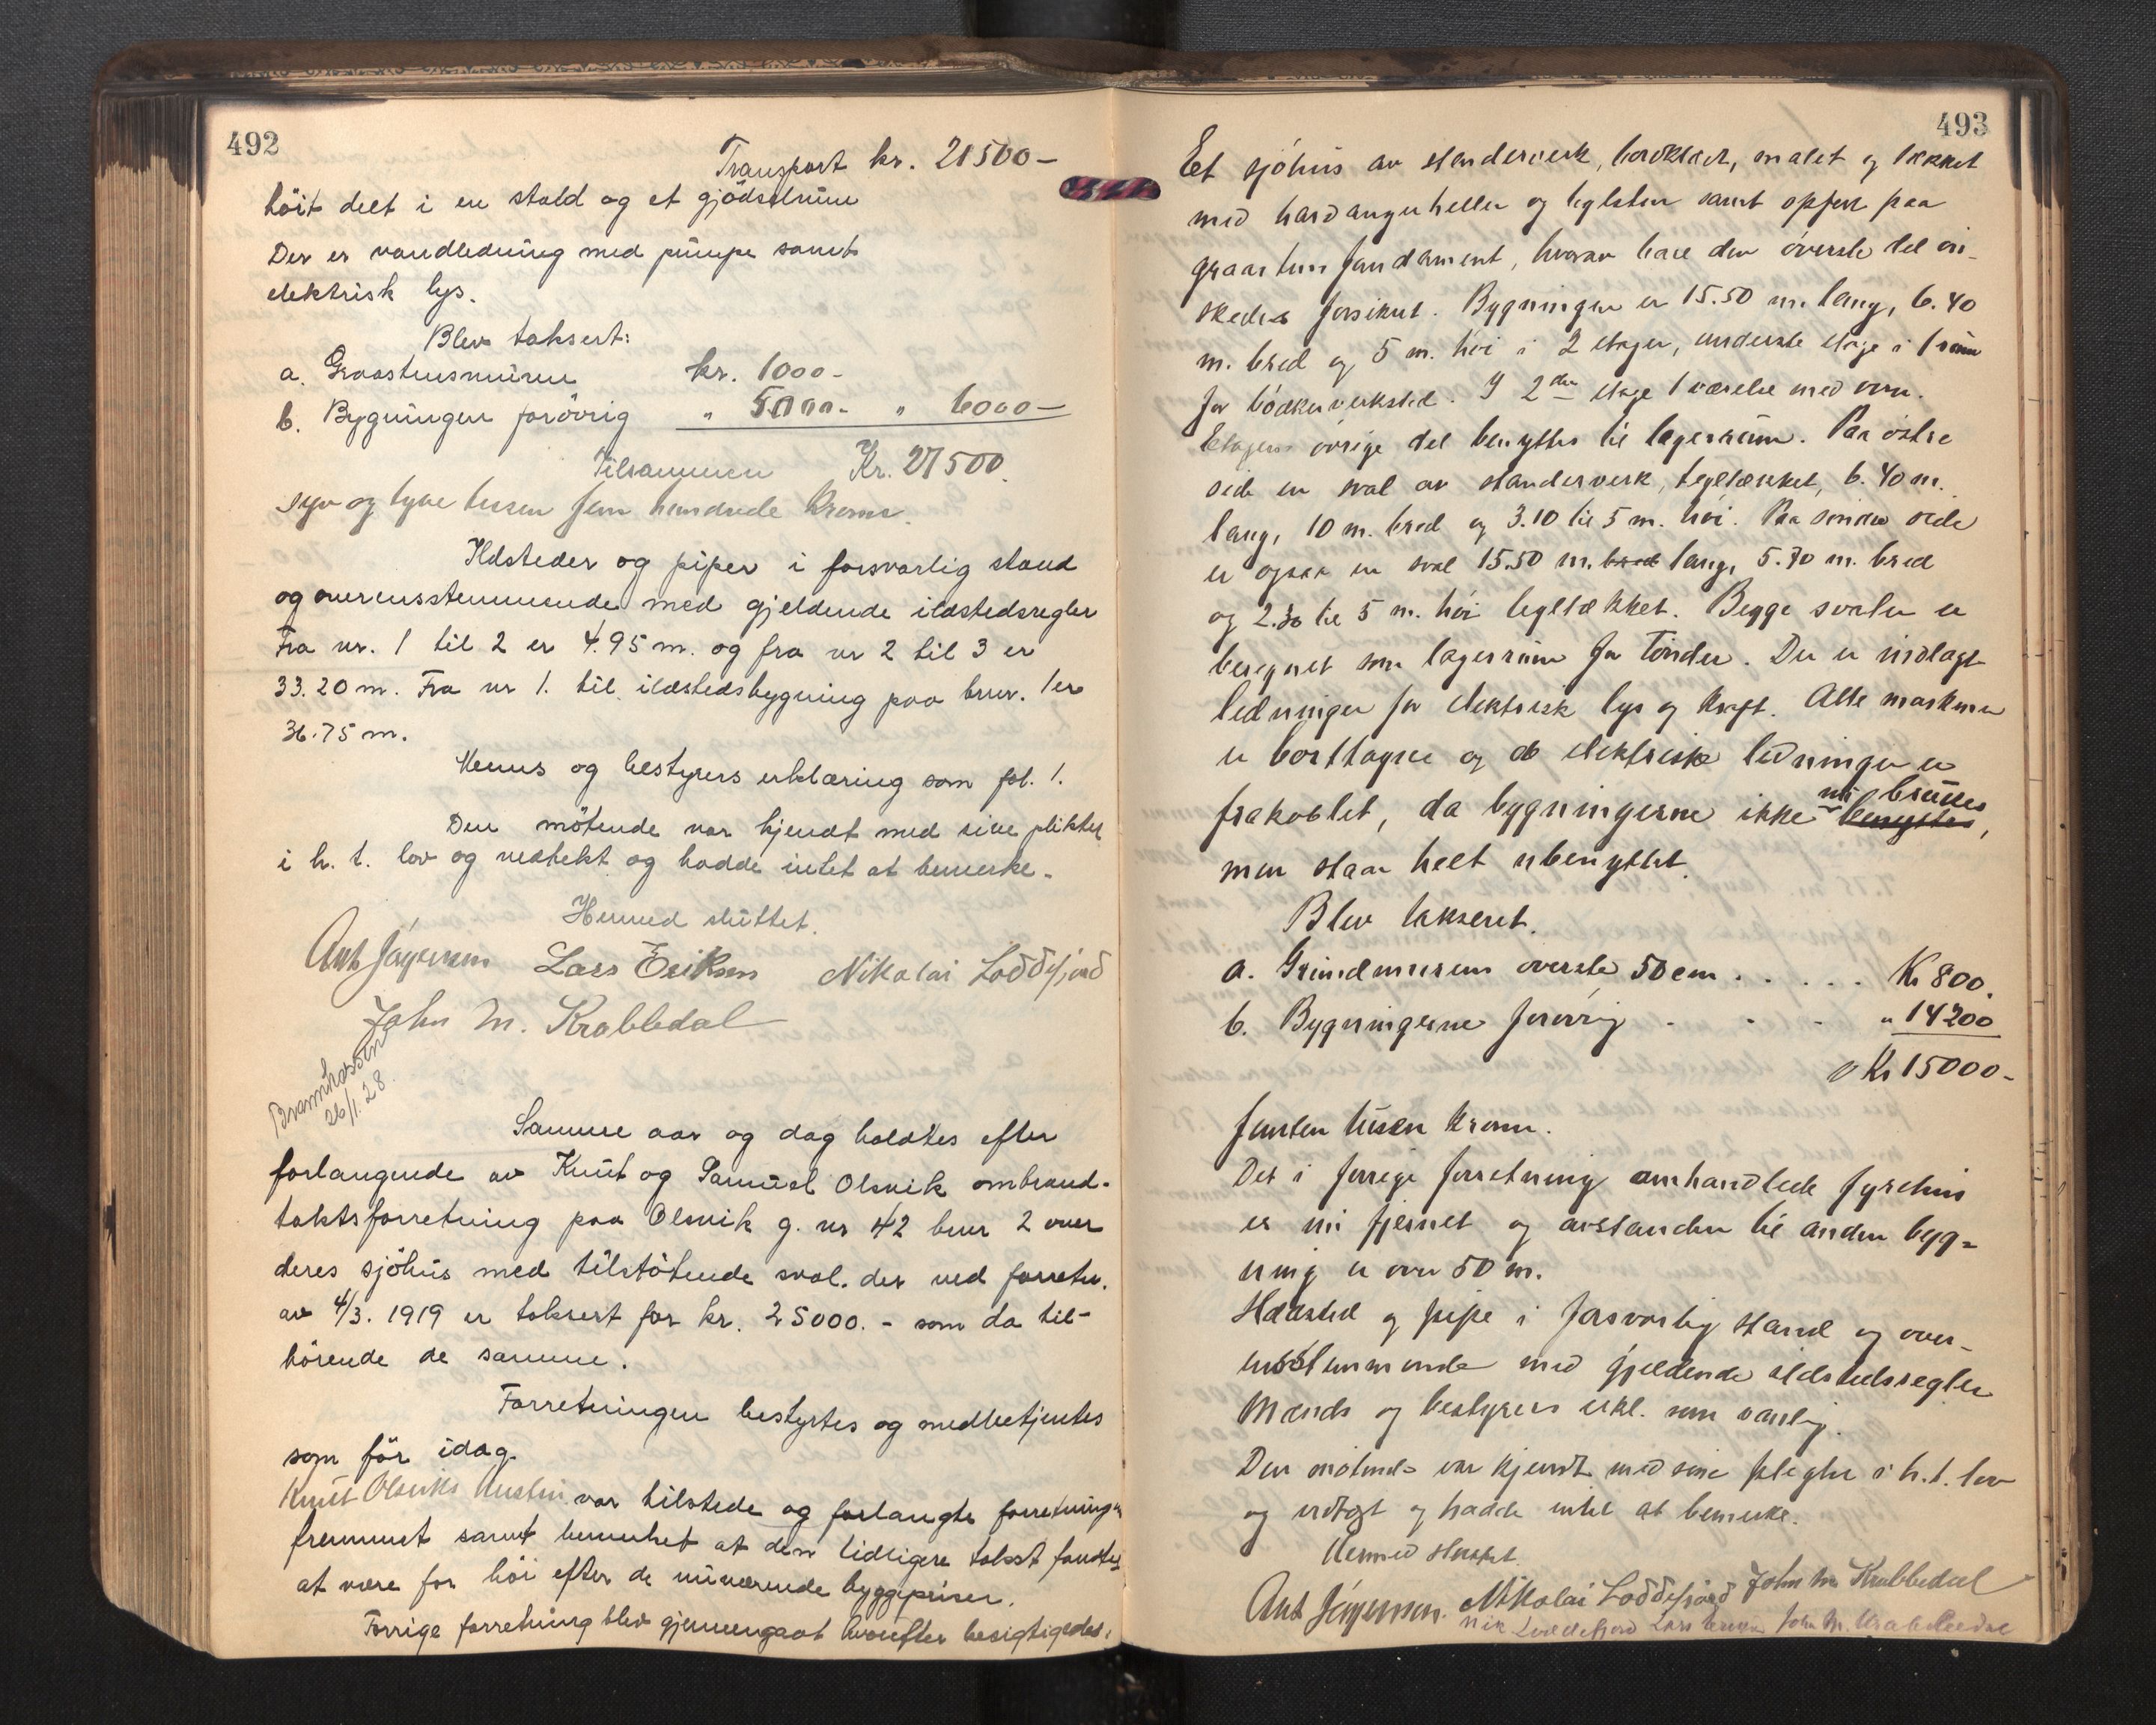 492
Transport kr. 21500-
höit delt i en stald og et gjödselrum
Der er vandledning med pumpe samt
elektrisk lys.
Blev taksert:
a. Graastensmuren kr. 1000-
b. Bygningen forövrig " 5000- " 6000-
Tilsammen Kr. 27500.
syv og tyve tusen fem hundrede kroner.
Ildsteder og piper i forsvarlig stand
og overensstemmende med gjeldende ildstedsregler
Fra nr. 1 til 2 er 4.95 m. og fra nr 2 til 3 er
33.20 m. Fra nr 1. til ildstedsbygning paa brnr. 1 er
36.75 m.
Menns og bestyrers erklæring som fol. 1.
Den mötende var kjendt med sine plikter
i h. t. lov og vedtekt og hadde intet at bemerke.
Hermed sluttet.
Ant Jörgensen Lars Eriksen Nikolai Loddefjord
John M. Krabbedal
Brannkassen
26/1.28.
Samme aar og dag holdtes efter
forlangende av Knut og Samuel Olsvik ombrand-
takstforretning paa Olsvik g. nr 42 bnr 2 over
deres sjöhus med tilstötende sval. der ved forretn.
av 4/3. 1919 er taksert for kr. 25000.- som da til-
hörende de samme.
Forretningen bestyrtes og medbetjentes
som för idag.
Knut Olsviks Hustru var tilstede og forlangte forretningen
fremmet samt bemerket at den tidligere takst fandtes
at være for höi efter de nuværende byggepriser.
Forrige forretning blev gjennemgaat hvorefter besigtigedes:
493
Et sjöhus av stenderverk, bordklædt, malet og tækket
med hardangerheller og teglsten samt opfört paa
graastens fundament, hvorav bare den överste del ön-
skedes forsikret. Bygningen er 15.50 m. lang, 6.40
m. bred og 5 m. höi i 2 etager, underste etage i 1 rum
for bödkerverksted. I 2den etage 1 værelse med ovn.
Etagens övrige del benyttes til lagerrum. Paa östre
side en sval av stenderverk, tegltækket, 6.40 m.
lang, 10 m. bred og 3.10 til 5 m. höi. Paa söndre side
er ogsaa en sval 15.50 m. bred lang, 5.70 m. bred
og 2.30 til 5 m. höi tegltækket. Begge svaler er
beregnet som lagerrum for tönder. Der er indlagt
ledninger for elektrisk lys og kraft. Alle maskiner
er borttagne og de elektriske ledninger er
frakoblet, da bygningerne ikke nu brukes benyttes,
men staar helt ubenyttet.
Blev takseret.
a. Grundmurens överste 50 cm . . . . . Kr 800.
b. Bygningerne forövrig - - - - " 14200
Kr 15000-
femten tusen kroner.
Det i forrige forretning omhandlede fyrehus
er nu fjernet og avstanden til anden byg-
ning er over 50 m.
Ildsted og pipe i forsvarlig stand og over-
ensstemmende med gjeldende ildstedsregler
Mænds og bestyrers erkl. som vanlig.
Den mötende var kjendt med sine pligter i h. t. lov
og vedtægt og hadde intet at bemerke.
Hermed sluttet.
Ant Jörgensen. Nikolai Loddefjord John M. Krabbedal
Nik Loddefjord Lars Eriksen John M. Krabbedal